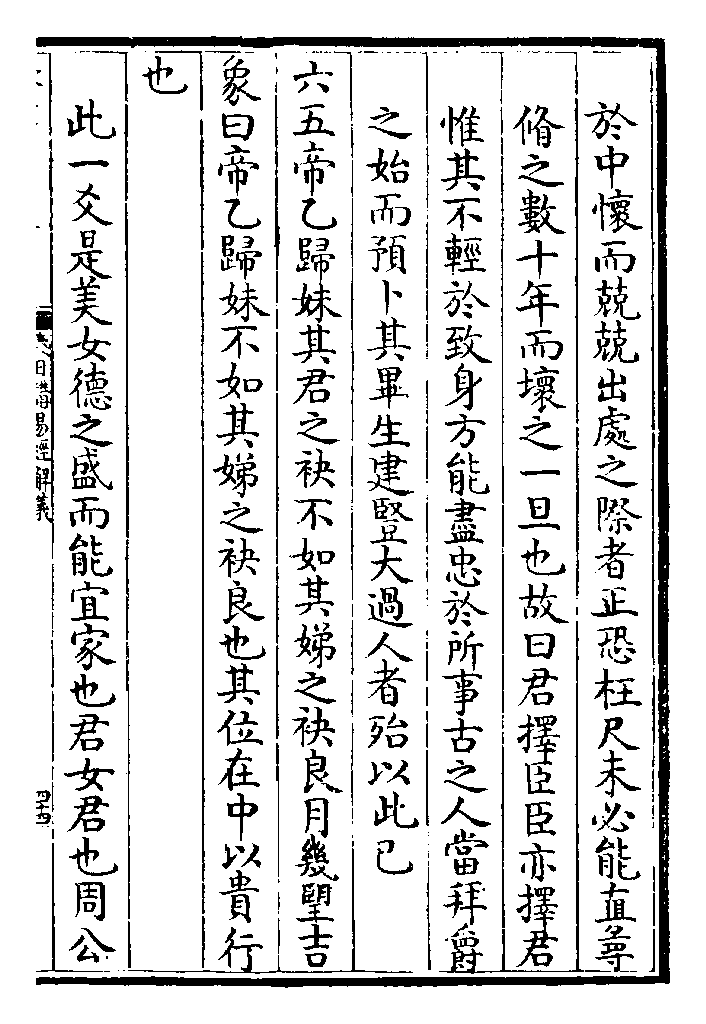 於中懷而兢兢出處之際者正恐枉尺未必能直尋
脩之數十年而壞之一旦也故曰君擇臣臣亦擇君
惟其不輕於致身方能盡忠於所事古之人當拜爵
之始而預卜其畢生建豎大過人者殆以此已
六五帝乙歸妹其君之袂不如其娣之袂良月幾望吉
象曰帝乙歸妹不如其娣之袂良也其位在中以貴行
也
此一爻是美女德之盛而能宜家也君女君也周公
日講易經解義
四十四